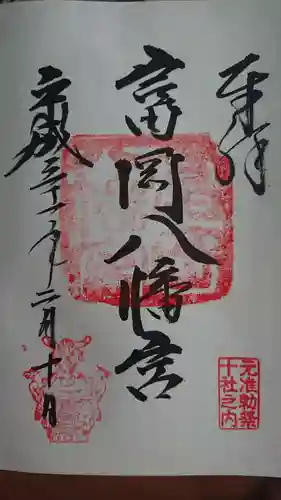 奉拝
富岡八幡宮
平成三十一年二月十日
元准勅祭
十社之内